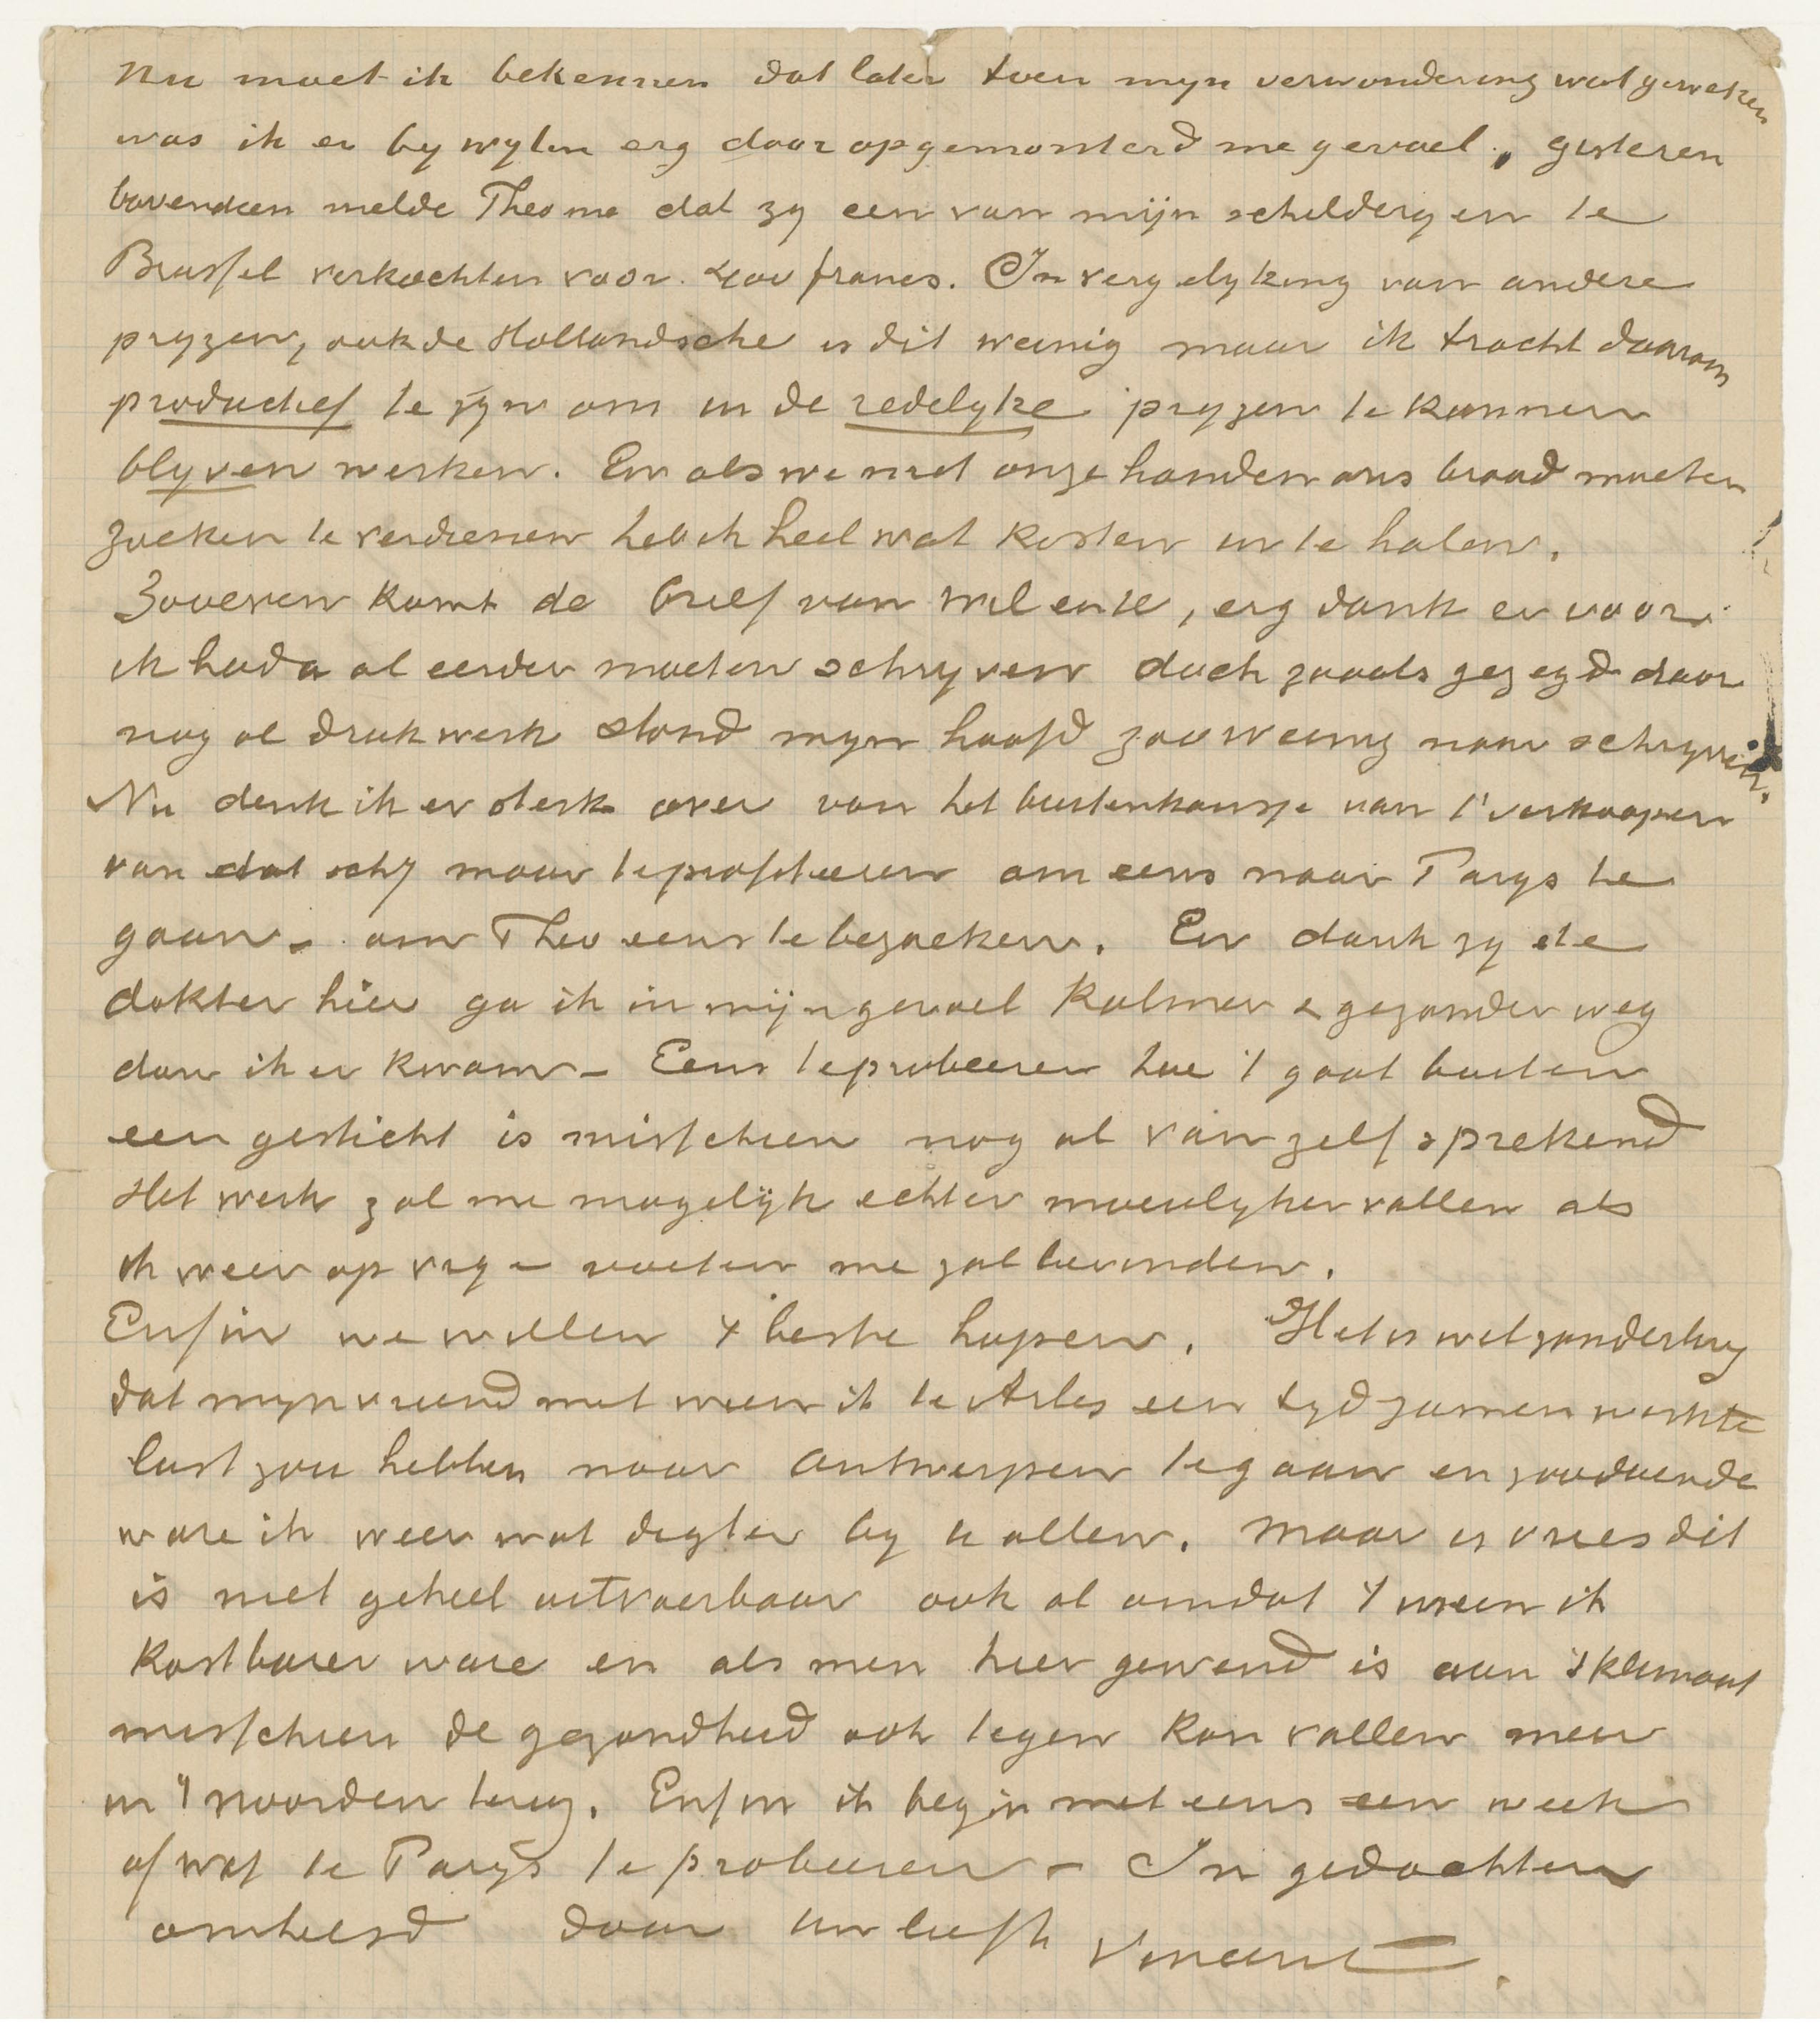 Nu moet ik bekennen dat later toen myn verwondering wat geweken
was ik er by wylen erg door opgemonterd me gevoel, gisteren
bovendien melde Theo me dat zy een van mijn schilderyen te
Brussel verkochten voor 400 francs. In vergelyking van andere
pryzen, ook de Hollandsche is dit weinig maar ik tracht daarom
productief te zyn om in de redelyke pryzen te kunnen
blyven werken. En als we met onze handen ons brood moeten
zoeken te verdienen heb ik heel wat kosten in te halen.
Zooeven komt de brief van Wil en U, erg dank er voor.
ik had al eerder moeten schryven doch zooals gezegd door
nog al druk werk stond myn hoofd zoo weinig naar schryven.
Nu denk ik er sterk over van het buitenkansje van 't verkoopen
van dat schij maar te profiteeren om eens naar Parys te
gaan – om Theo eens te bezoeken. En dank zy de
dokter hier ga ik in mijn gevoel kalmer & gezonder weg
dan ik er kwam – Eens te probeeren hoe 't gaat buiten
een gesticht is misschien nog al van zelf sprekend
Het werk zal me mogelijk echter moeielyker vallen als
ik weer op vrye voeten me zal bevinden.
Enfin we willen 't beste hopen. Het is wel zonderling
dat myn vriend met wien ik te Arles een tyd zamen werkte
lust zou hebben naar Antwerpen te gaan en zoodoende
ware ik weer wat digter by U allen. Maar ik vrees dit
is niet geheel uitvoerbaar ook al omdat 't meen ik
kostbarer ware en als men hier gewend is aan 't klimaat
misschien de gezondheid ook tegen kon vallen men
in 't noorden terug. Enfin ik begin met eens een week
of wat te Parijs te probeeren – In gedachten
omhelsd door Uw liefh
Vincent